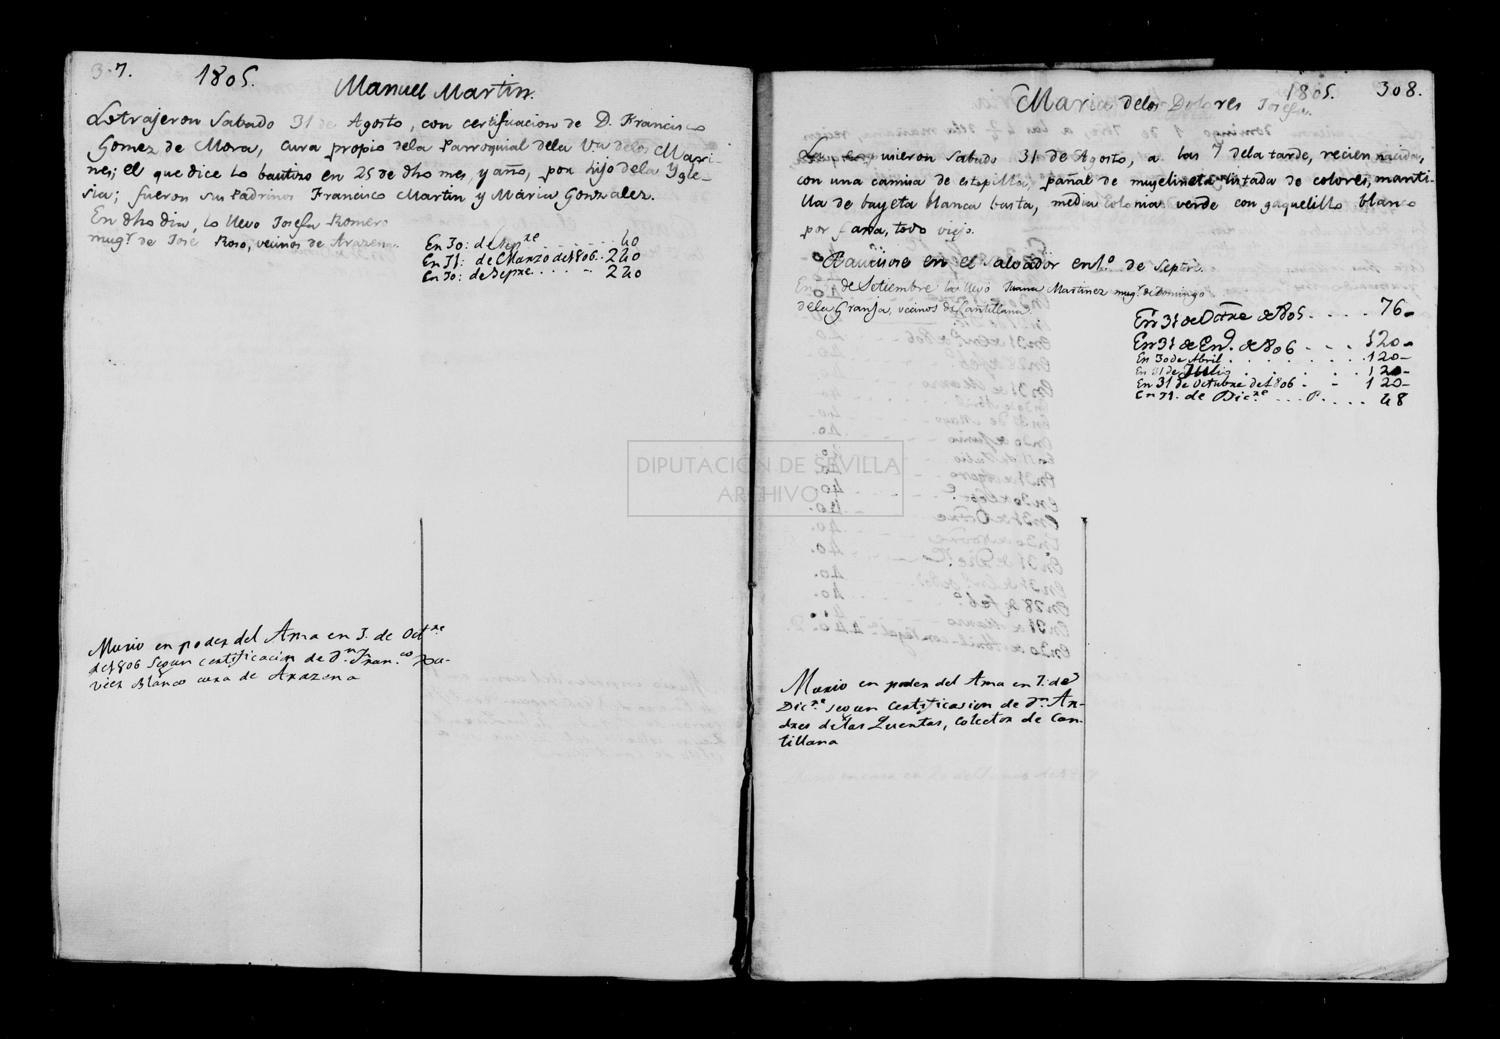 3.7. 1805.
Manuel Martin.
Lo trajeron Sabado 31 de Agosto, con certificacion de D. Francisco
Gomez de Mora, cura propio dela Parroquial dela Va. de los Mari-
nes; el que dice lo bautizo en 25 de dho mes, y año, por hijo dela Ygle-
sia; fueron sus Padrinos Francisco Martin y Maria Gonzalez.
En dho dia, lo llevo Josefa Romero
mugr. de Jose Roso, vecinos de Arazena.
En 30: de Sepre ....... 40
En 31: de Marzo de 1806. 240
En 30: de Sepre. .... 240
Murio en poder del Ama en 3. de Octre
de 1806 Segun certificacion de Dn. Franco Xa-
vier Blanco cura de Arazena
1805. 308.
Maria delos Dolores Josefa.
pusieron Sabado 31 de Agosto, a las 7 dela tarde, recien nacida,
con una camisa de estopilla, pañal de muselineta listada de colores, manti-
lla de bayeta blanca basta, media colonia verde con gaquelillo blanco
por faxa, todo viejo.
Bautizose en el Salvador en 1o. de Septre.
En de Setiembre la llevo Juana Martinez mugr. de Domingo
dela Granja, vecinos de Cantillana.
En 31 de Octre de 1805 .... 76-
En 31 de Eno. de 806 - - - 120-
En 30 de Abril ....... 120-
En 31 de Julio ....... 120-
En 31 de Octubre de 1806 - - 120-
En 31. de Dice ... P. ... 48
Murio en poder del Ama en 7. de
Dice segun certificasion de Dn. An-
dres de las Quentas, Colector de Can-
tillana
DIPUTACIÓN DE SEVILLA
ARCHIVO